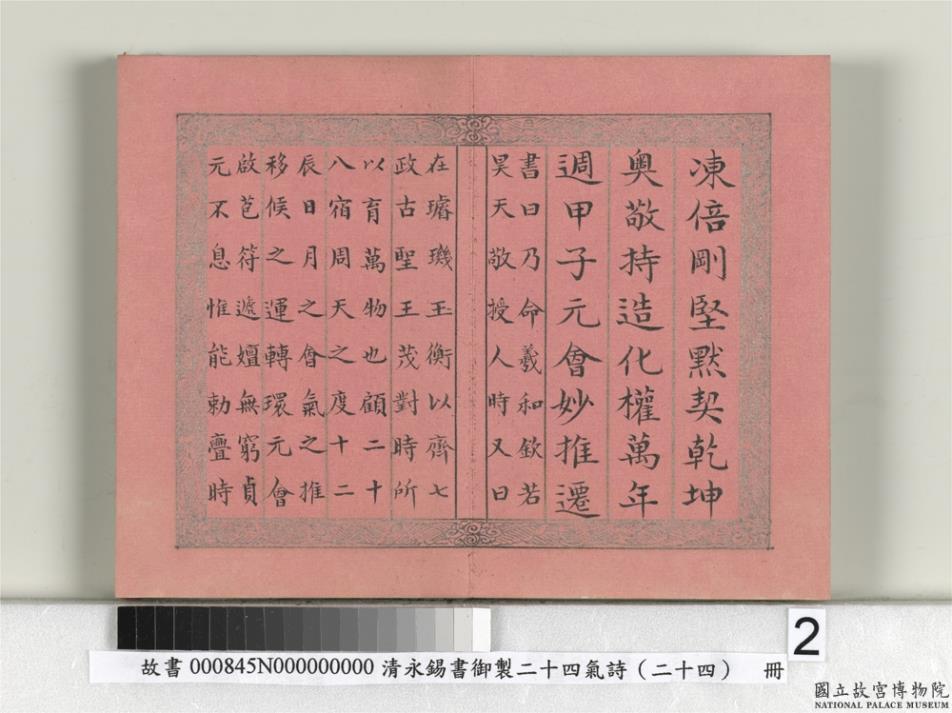 凍倍剛堅黙契乾坤
奧敬持造化權萬年
週甲子元會妙推遷
書曰乃命羲和欽若
昊天敬授人時又曰
在璿璣玉衡以齊七
政古聖王茂對時所
以育萬物也顧二十
八宿周天之度十二
辰日月之會氣之推
移候之運轉環元會
啟苞符遞嬗無窮貞
元不息惟能勅亶時
2
故書 000845N000000000 清永錫書御製二十四氣詩（二十四） 冊
國立故宮博物院
NATIONAL PALACE MUSEUM